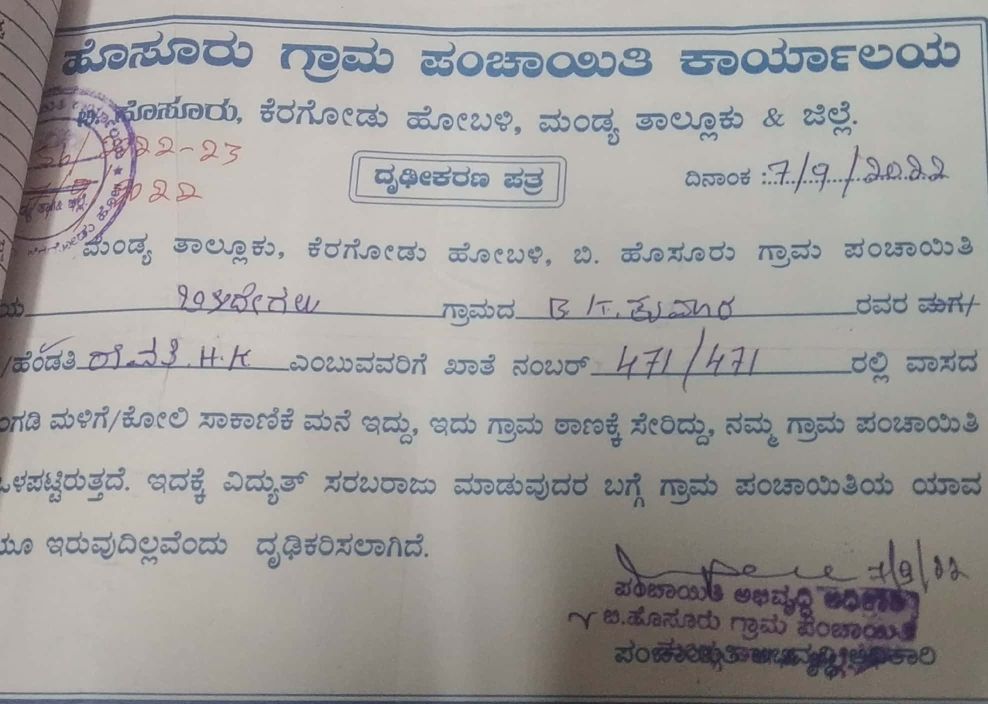 ಹೊಸೂರು ಗ್ರಾಮ ಪಂಚಾಯಿತಿ ಕಾರ್ಯಾಲಯ
ಬಿ. ಹೊಸೂರು, ಕೆರಗೋಡು ಹೋಬಳಿ, ಮಂಡ್ಯ ತಾಲ್ಲೂಕು & ಜಿಲ್ಲೆ.
2022-23
ದೃಢೀಕರಣ ಪತ್ರ
ದಿನಾಂಕ :7/9/2022
2022
ಮಂಡ್ಯ ತಾಲ್ಲೂಕು, ಕೆರಗೋಡು ಹೋಬಳಿ, ಬಿ. ಹೊಸೂರು ಗ್ರಾಮ ಪಂಚಾಯಿತಿ
ಗ್ರಾಮದ B.T. ಕುಮಾರ ರವರ ಮಗ/
/ಹೆಂಡತಿ H.K ಎಂಬುವವರಿಗೆ ಖಾತೆ ನಂಬರ್ 471/471 ರಲ್ಲಿ ವಾಸದ
ಂಗಡಿ ಮಳಿಗೆ/ಕೋಲಿ ಸಾಕಾಣಿಕೆ ಮನೆ ಇದ್ದು, ಇದು ಗ್ರಾಮ ಠಾಣಕ್ಕೆ ಸೇರಿದ್ದು, ನಮ್ಮ ಗ್ರಾಮ ಪಂಚಾಯಿತಿ
ಒಳಪಟ್ಟಿರುತ್ತದೆ. ಇದಕ್ಕೆ ವಿದ್ಯುತ್ ಸರಬರಾಜು ಮಾಡುವುದರ ಬಗ್ಗೆ ಗ್ರಾಮ ಪಂಚಾಯಿತಿಯ ಯಾವ
ಯೂ ಇರುವುದಿಲ್ಲವೆಂದು ದೃಢಿಕರಿಸಲಾಗಿದೆ.
7/9/22
ಪಂಚಾಯಿತಿ ಅಭಿವೃದ್ಧಿ ಅಧಿಕಾರಿ
ಬಿ.ಹೊಸೂರು ಗ್ರಾಮ ಪಂಚಾಯಿತಿ
ಪಂಚಾಯಿತಿ ಅಭಿವೃದ್ಧಿ ಅಧಿಕಾರಿ